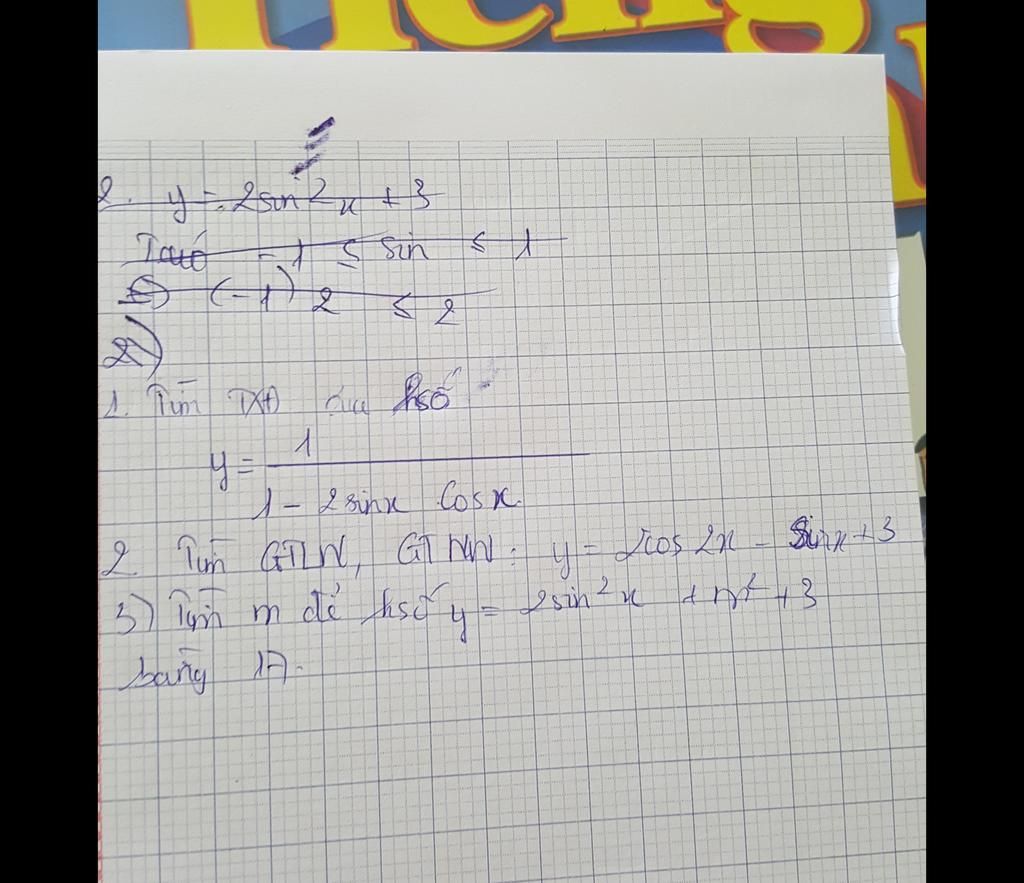 Tiếng
2. y = 2sin² x + 3
Ta có -1 ≤ sin ≤ 1
⇔ (-1) 2 ≤ 2
2)
1. Tìm TXĐ của hsố
y = 1 / (1 - 2 sinx cosx)
2 Tìm GTLN, GTNN: y = 2cos 2x - Sinx + 3
3) Tìm m để hsố y = 2sin² x + m² + 3
bằng 17.